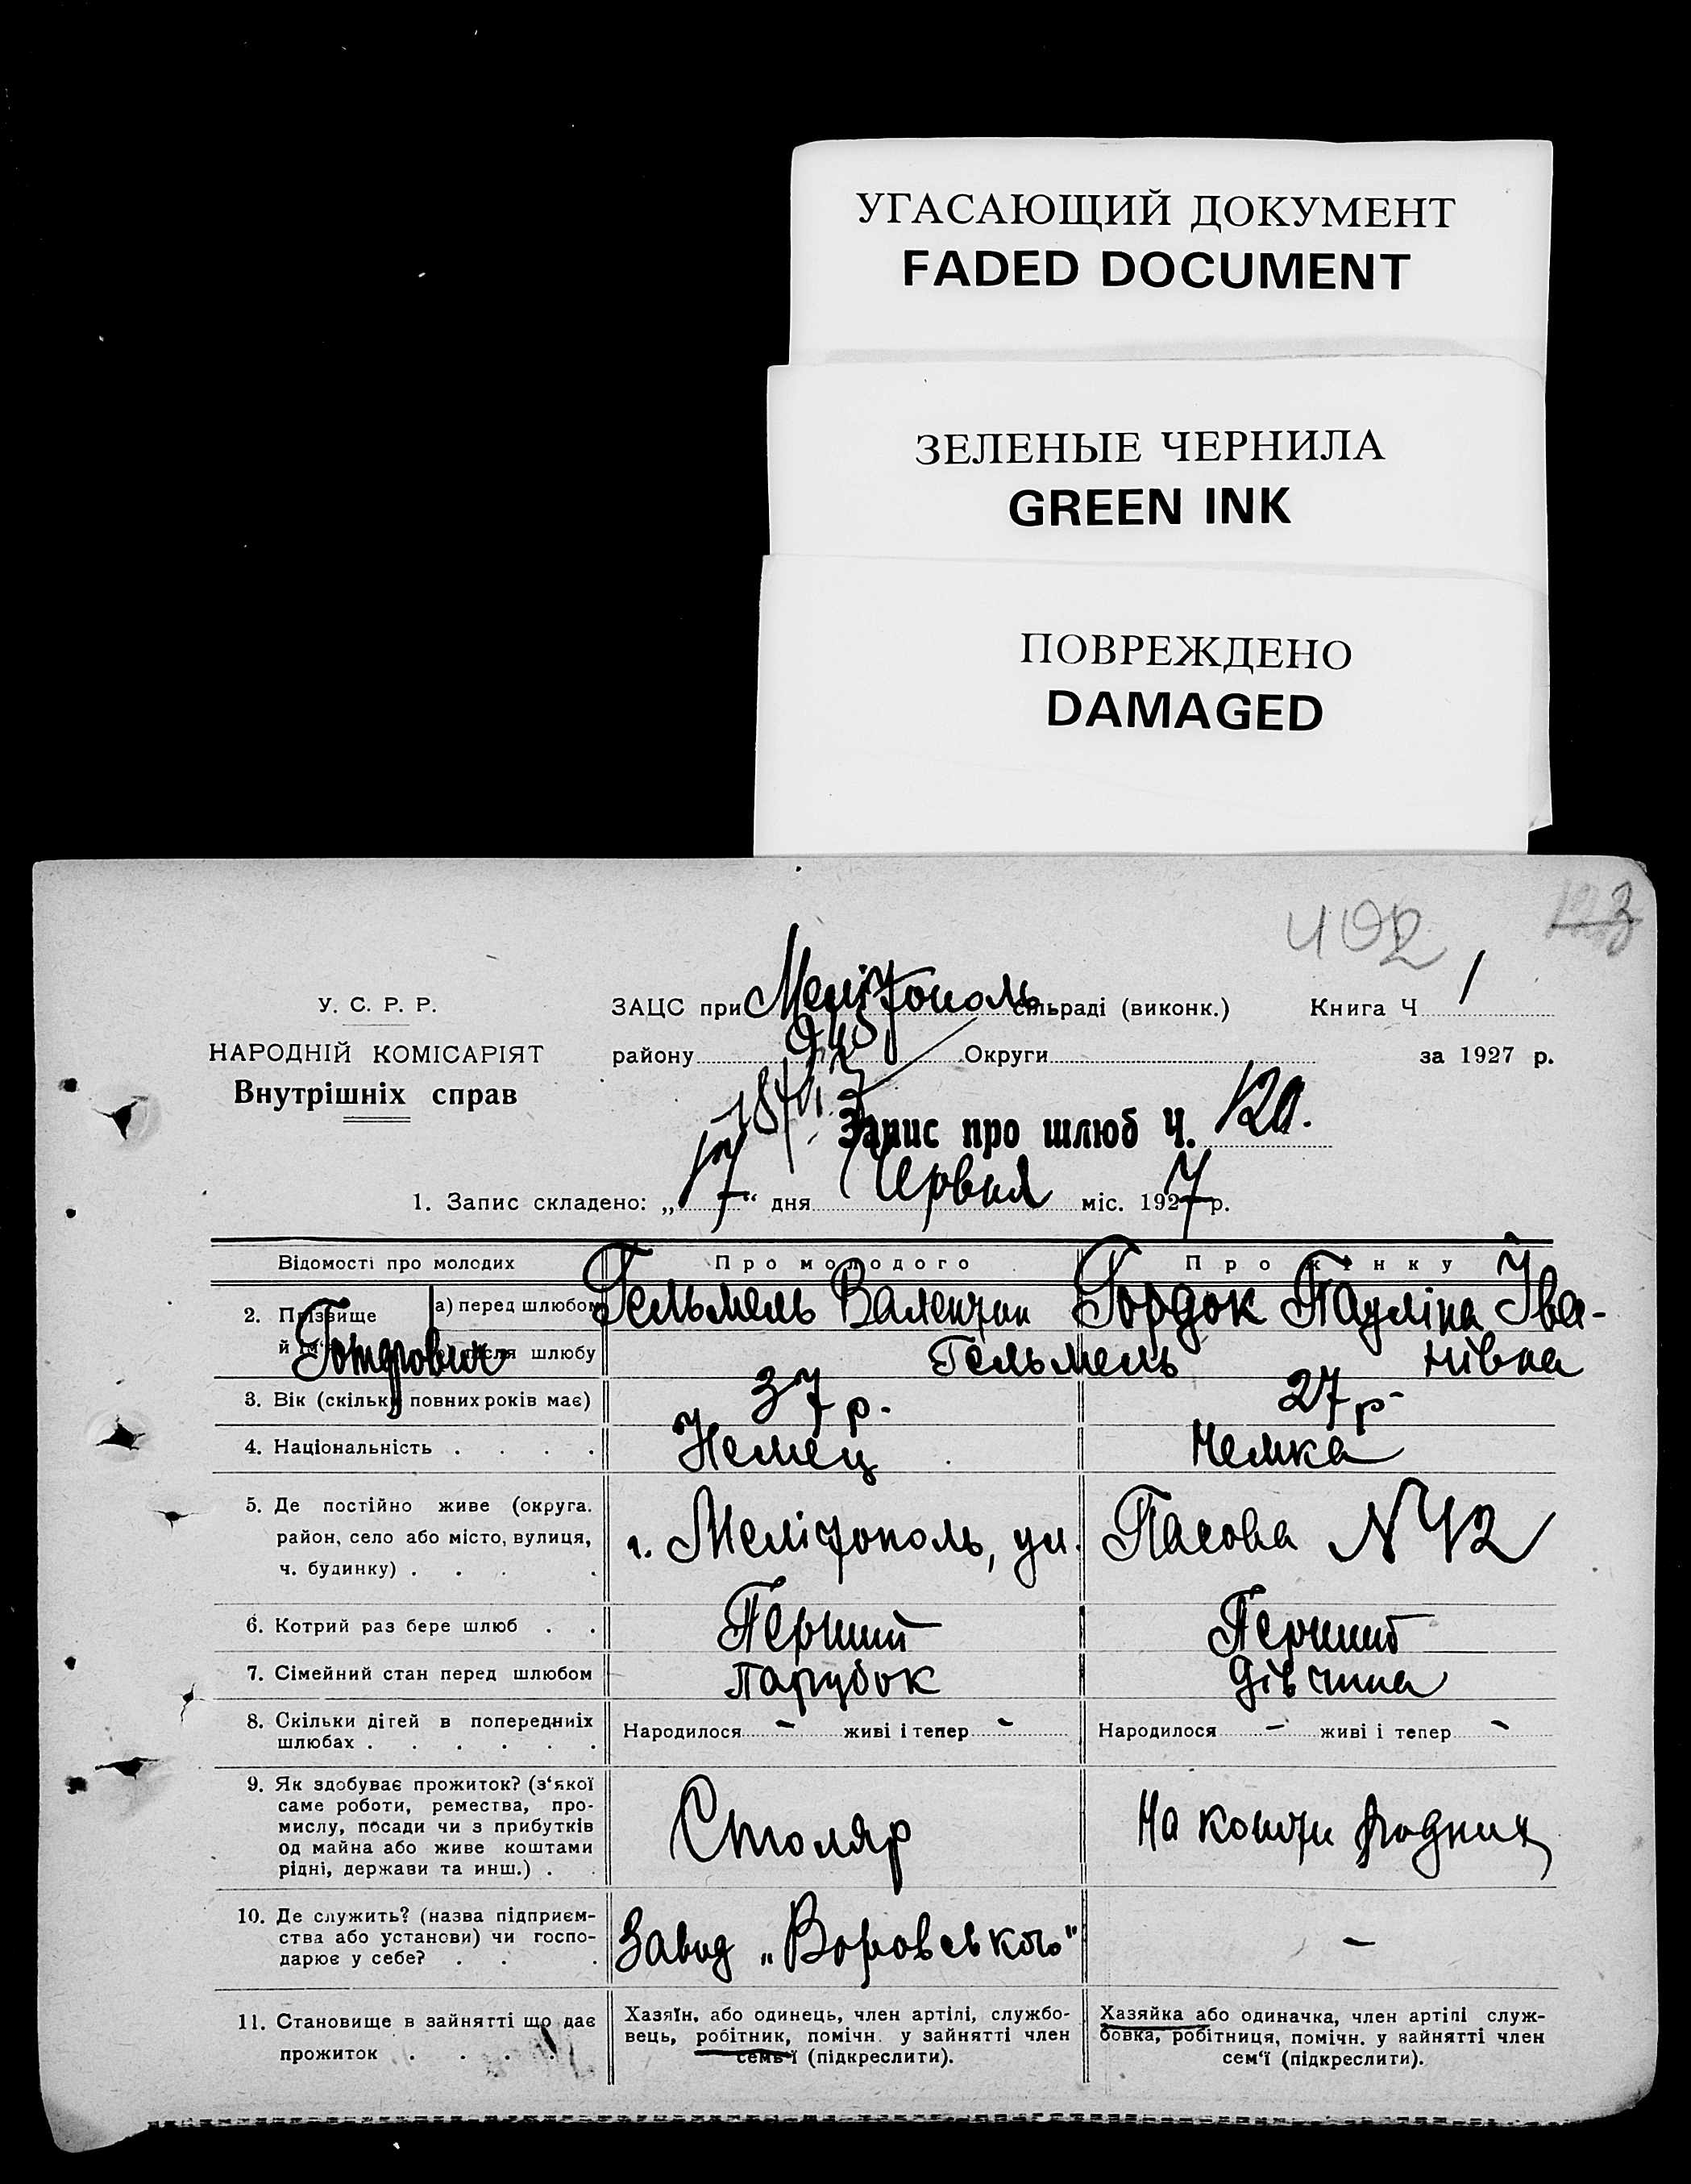 УГАСАЮЩИЙ ДОКУМЕНТ
FADED DOCUMENT
ЗЕЛЕНЫЕ ЧЕРНИЛА
GREEN INK
ПОВРЕЖДЕНО
DAMAGED
402
У. С. Р. Р.
НАРОДНІЙ КОМІСАРІЯТ
Внутрішніх справ
ЗАЦС при Мелітополь сільраді (виконк.) Книга Ч 1
району Округи за 1927 р.
Запис про шлюб Ч. 120.
1. Запис складено: „17“ дня Червня міс. 1927 р.
Відомості про молодих Про молодого Про жінку
2. Прізвище а) перед шлюбом Гельмель Валентин Гордок Пауліна Іва-
й шлюбу Гельмель нівна
3. Вік (скільки повних років має) 37 р. 27 р.
4. Національність . . . . Немец Немка
5. Де постійно живе (округа. район, село або місто, вулиця, ч. будинку) . . . . г. Мелітополь, ул. Пасова N 42
6. Котрий раз бере шлюб . . Перший Перший
7. Сімейний стан перед шлюбом парубок дівчина
8. Скільки дітей в попередніх шлюбах . . . . . . Народилося - живі і тепер - Народилося - живі і тепер -
9. Як здобуває прожиток? (з‘якої саме роботи, ремества, про-
мислу, посади чи з прибутків
од майна або живе коштами
рідні, держави та инш.) . . Столяр На кошти родних
10. Де служить? (назва підприєм-
ства або установи) чи госпо-
дарює у себе? . . . Завод „Воровського" —
11. Становище в зайнятті що дає
прожиток . . . . .
Хазяїн, або одинець, член артілі, службо-
вець, робітник, помічн. у зайнятті член
семь‘ї (підкреслити).
Хазяйка або одиначка, член артілі служ-
бовка, робітниця, помічн. у зайнятті член
сем‘ї (підкреслити).